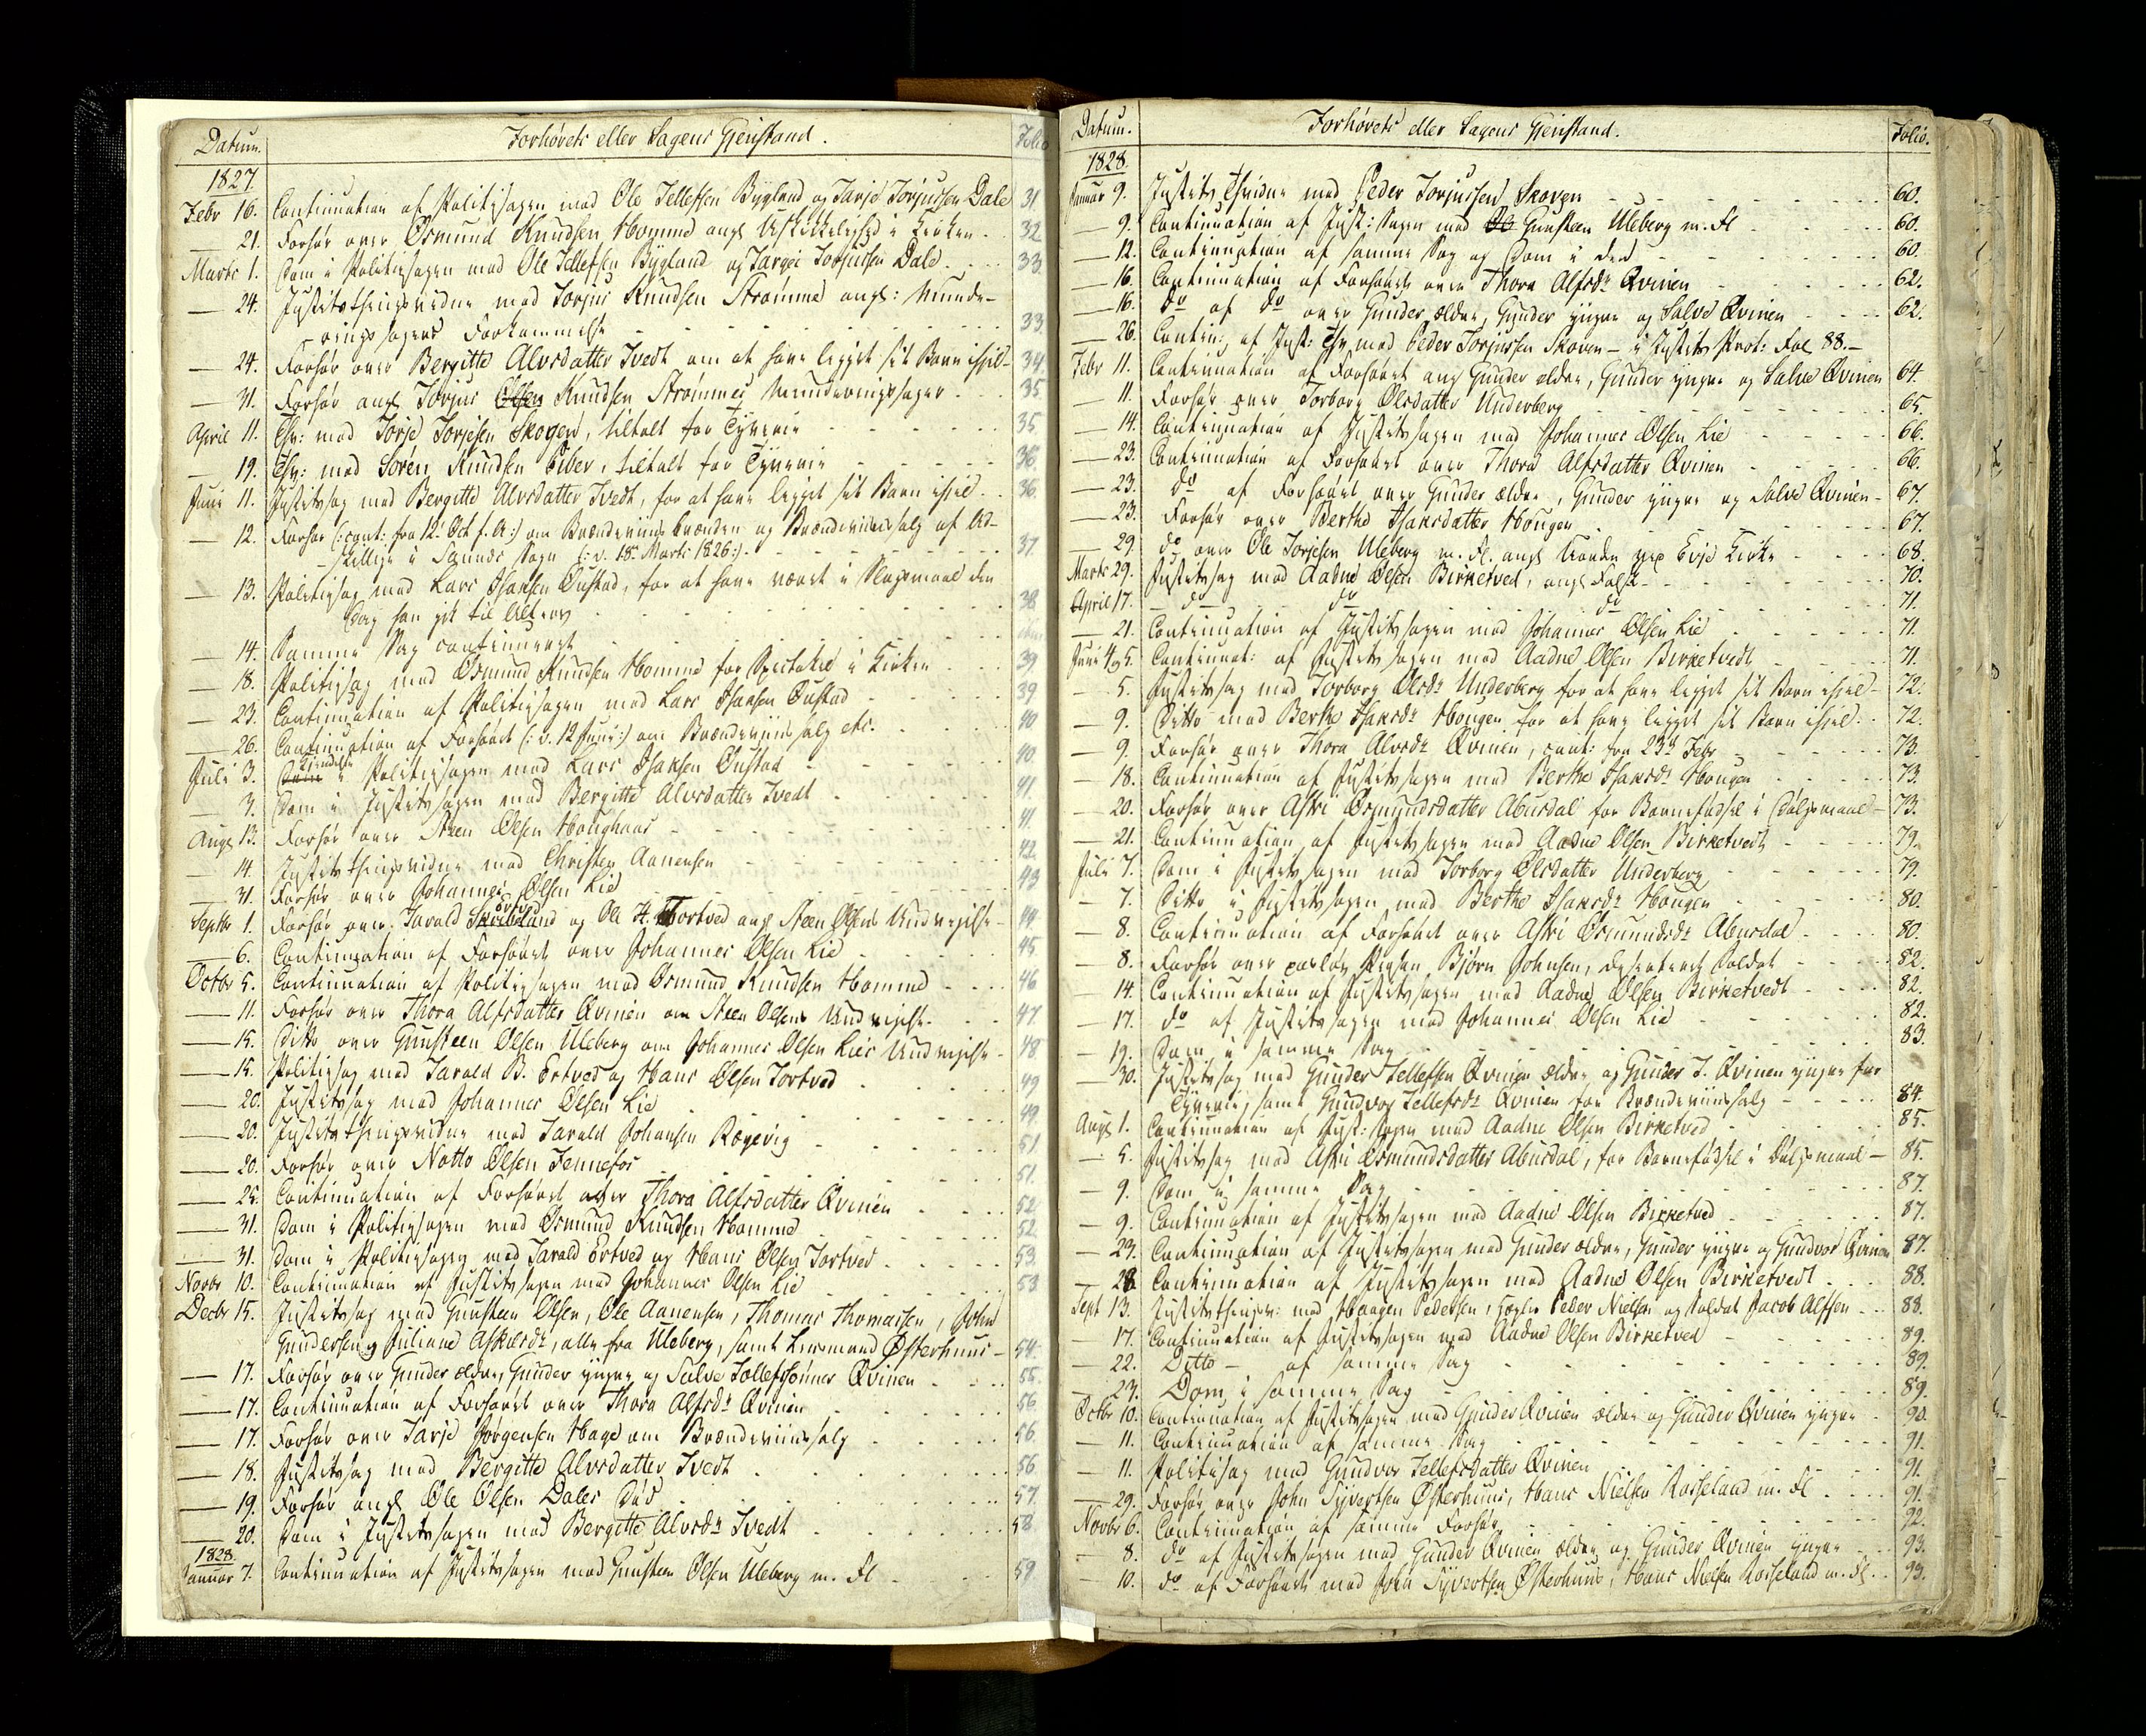 Datum. Forhørets eller Sagens Gjenstand. Folio
1827.
Febr 16. Continuation af Politisagen mod Ole Tellefsen Bygland og Tarje Torjussen Dale 31
— 21. Forhør over Osmund Knudsen Homme angl. Uskikkelighed i Kirken. 32
Marts 1. Dom i Politisagen mod Ole Tellefsen Bygland og Targei Torjussen Dale. 33
— 24. Justitsthingsvidne mod Torjus Knudsen Strømme angl: Vurde-
rings sagens Forkommelse 33.
— 24. Forhør over Bergitte Alvsdatter Tvedt om at have ligget sit Barn ihjel- 34
— 31. Forhør angl Torjus Olsen Knudsen Strømmes Vurderingssager. 35
April 11. Thv: mod Torje Torjesen Skogen, tiltalt for Tyverie 35
— 19. Thv: mod Søren Knudsen Eiber, tiltalt for Tyverie 36.
Juni 11. Justitssag mod Bergitte Alvsdatter Tvedt, for at have ligget sit Barn ihjel. 36.
— 12. Forhør (:cont: fra 12te Oct f. A:) om Brændeviins brænden og Brændeviinssalg af Ad-
skillige i Sognes Sogn (:v. 18de Marts 1826:). 37.
— 13. Politisag mod Lars Isaksen Øustad, for at have været i Slagsmaal den
Dag han gik til Alters 38
— 14. Samme Sag continueret
— 18. Politisag mod Osmund Knudsen Homme for Spectakel i Kirken 39
— 23. Continuation af Politisagen mod Lars Isaksen Øustad 39
— 26. Continuation af Forhøret (:v. 12 Juni:) om Brændeviinssalg etc. 40
Juli 3. Dom Kjendelse i Politisagen mod Lars Isaksen Øustad 40.
— 3. Dom i Justitssagen mod Bergitte Alvsdatter Tvedt 41.
Augl 13. Forhør over Steen Olsen Houghaas 41.
— 14. Justitsthingsvidne mod Christen Aanensen 42.
— 31. Forhør over Johannes Olsen Lie 43
Septbr 1. Forhør over Tarald og Ole H. Tortved angl Steen Olsens Undvigelse- 44.
— 6. Continuation af Forhøret over Johannes Olsen Lie 45
Octbr 5. Continuation af Politisagen mod Osmund Knudsen Homme 46
— 11. Forhør over Thora Alfsdatter Qvinen om Steen Olsens Undvigelse. 47.
— 15. Ditto over Gunsteen Olsen Uleberg om Johannes Olsen Lies Undvigelse- 48
— 15. Politisag mod Tarald B. Ertved og Hans Olsen Tortved 49
— 20. Justitssag mod Johannes Olsen Lie 49.
— 20. Justitsthingsvidne mod Tarald Johansen Røgevig 51
— 20. Forhør over Notto Olsen Fennefos 51.
— 25. Continuation af Forhøret over Thora Alfsdatter Qvinen 52
— 31. Dom i Politisagen mod Osmund Knudsen Homme 52.
— 31. Dom i Politisagen mod Tarald Ertved og Hans Olsen Tortved 53.
Novbr 10. Continuation af Justitssagen mod Johannes Olsen Lie 53
Decbr 15. Justitssag mod Gunsteen Olsen, Ole Aanensen, Thomas Thomassen, John
Gundersen og Juliane Aslaksdr, alle fra Uleberg, samt Lensmand Østerhuus- 54.
— 17. Forhør over Gunder ældre, Gunder yngre og Salve Tollefsønner Qvinen 55.
— 17. Continuation af Forhøret over Thora Alfsdr Qvinen 56.
— 17. Forhør over Tarje Jørgensen Hage om Brændeviinssalg 56.
— 18. Justitssag mod Bergitte Alvsdatter Tvedt 56
— 19. Forhør angl Ole Olsen Dales Død 57.
— 20. Dom i Justitssagen mod Bergitte Alvsdr Tvedt 58
1828.
Januar 7. Continuation af Justitssagen mod Gunsteen Olsen Uleberg m. Fl 59
Datum. Forhørets eller Sagens Gjenstand. Folio.
1828.
Januar 9. Justits Thvidne mod Peder Torjussen Skogen 60.
— 9. Continuation af Just: Sagen mod Ole Gunsteen Uleberg m. Fl 60.
— 12. Continuation af samme Sag og Dom i den 60.
— 16. Continuation af Forhøret over Thora Alfsdr Qvinen 62.
— 16. do af do over Gunder ældre, Gunder yngre og Salve Qvinen 62.
— 26. Contin: af Just: Thv mod Peder Torjussen Skoven – i Justits Prot: Fol 88.–
Febr 11. Continuation af Forhøret ang Gunder ældre, Gunder yngre og Salve Qvinen 64.
— 11. Forhør over Torborg Olsdatter Underberg 65.
— 14. Continuation af Justitssagen mod Johannes Olsen Lie 66.
— 23. Continuation af Forhøret over Thora Alfsdatter Qvinen 66.
— 23. do af Forhøret over Gunder ældre, Gunder yngre og Salve Qvinen- 67.
— 23. Forhør over Berthe Isaksdatter Hougen 67.
— 29. do over Ole Torjesen Uleberg m. Fl. angl ved Evje Kirke 68.
Marts 29. Justitssag mod Aadne Olsen Birketved, angl Falsk 70.
April 17. do do do 71.
— 21. Continuation af Justitssagen mod Johannes Olsen Lie 71.
Juni 4 og 5. Continuat: af Justitssagen mod Aadne Olsen Birketvedt 71.
— 5. Justitssag mod Torborg Olsdr Underberg for at have ligget sit Barn ihjel- 72.
— 9. Ditto mod Berthe Isaksdr Hougen for at have ligget sit Barn ihjel. 72.
— 9. Forhør over Thora Alvsdr Qvinen, cont: fra 23de Febr 73.
— 18. Continuation af Justitssagen mod Berthe Isaksdr Hougen 73.
— 20. Forhør over Astri Osmundsdatter Abusdal for Barnefødsel i Dølgsmaal- 73.
— 21. Continuation af Justitssagen mod Aadne Olsen Birketvedt 79.
Juli 7. Dom i Justitssagen mod Torborg Olsdatter Underberg 79.
— 7. Ditto i Justitssagen mod Berthe Isaksdr Hougen 80.
— 8. Continuation af Forhøret over Astri Osmundsdr Abusdal 80.
— 8. Forhør over pasløs Person Bjørn Johnsen, deserteret Soldat 82.
— 14. Continuation af Justitssagen mod Aadne Olsen Birketvedt 82.
— 17. do af Justitssagen mod Johannes Olsen Lie 82.
— 19. Dom i samme Sag 83.
— 30. Justitssag mod Gunder Tellefsen Qvinen ældre og Gunder T. Qvinen yngre for
Tyverie, samt Gundvor Tellefsdr Qvinen for Brændeviinssalg 84.
Augl 1. Continuation af Just: Sagen mod Aadne Olsen Birketved 85.
— 5. Justitssag mod Astri Osmundsdatter Abusdal, for Barnefødsel i Dølgsmaal- 85.
— 9. Dom i samme Sag 87.
— 9. Continuation af Justitssagen mod Aadne Olsen Birketved 87.
— 23. Continuation af Justitssagen mod Gunder ældre, Gunder yngre og Gundvor Qvinen 87.
— 28. Continuation af Justitssagen mod Aadne Olsen Birketvedt 88.
Sept 13. Justitsthingsv: mod Haagen Pedersen, Peder Nielsen og Soldat Jacob Alfsen 88.
— 17. Continuation af Justitssagen mod Aadne Olsen Birketved 89.
— 22. Ditto – af samme Sag 89.
— 23. Dom i samme Sag 89.
Octbr 10. Continuation af Justitssagen mod Gunder Qvinen ældre og Gunder Qvinen yngre 90.
— 11. Continuation af samme Sag 91.
— 11. Politisag mod Gundvor Tellefsdatter Qvinen 91.
— 29. Forhør over John Syvertsen Østerhuus, Hans Nielsen Rosseland m. Fl 91.
Novbr 6. Continuation af samme Forhør 92.
— 8. do af Justitssagen mod Gunder Qvinen ældre og Gunder Qvinen yngre 93.
— 10. do af Forhøret mod John Syvertsen Østerhuus, Hans Nielsen Rosseland m. Fl. 93.